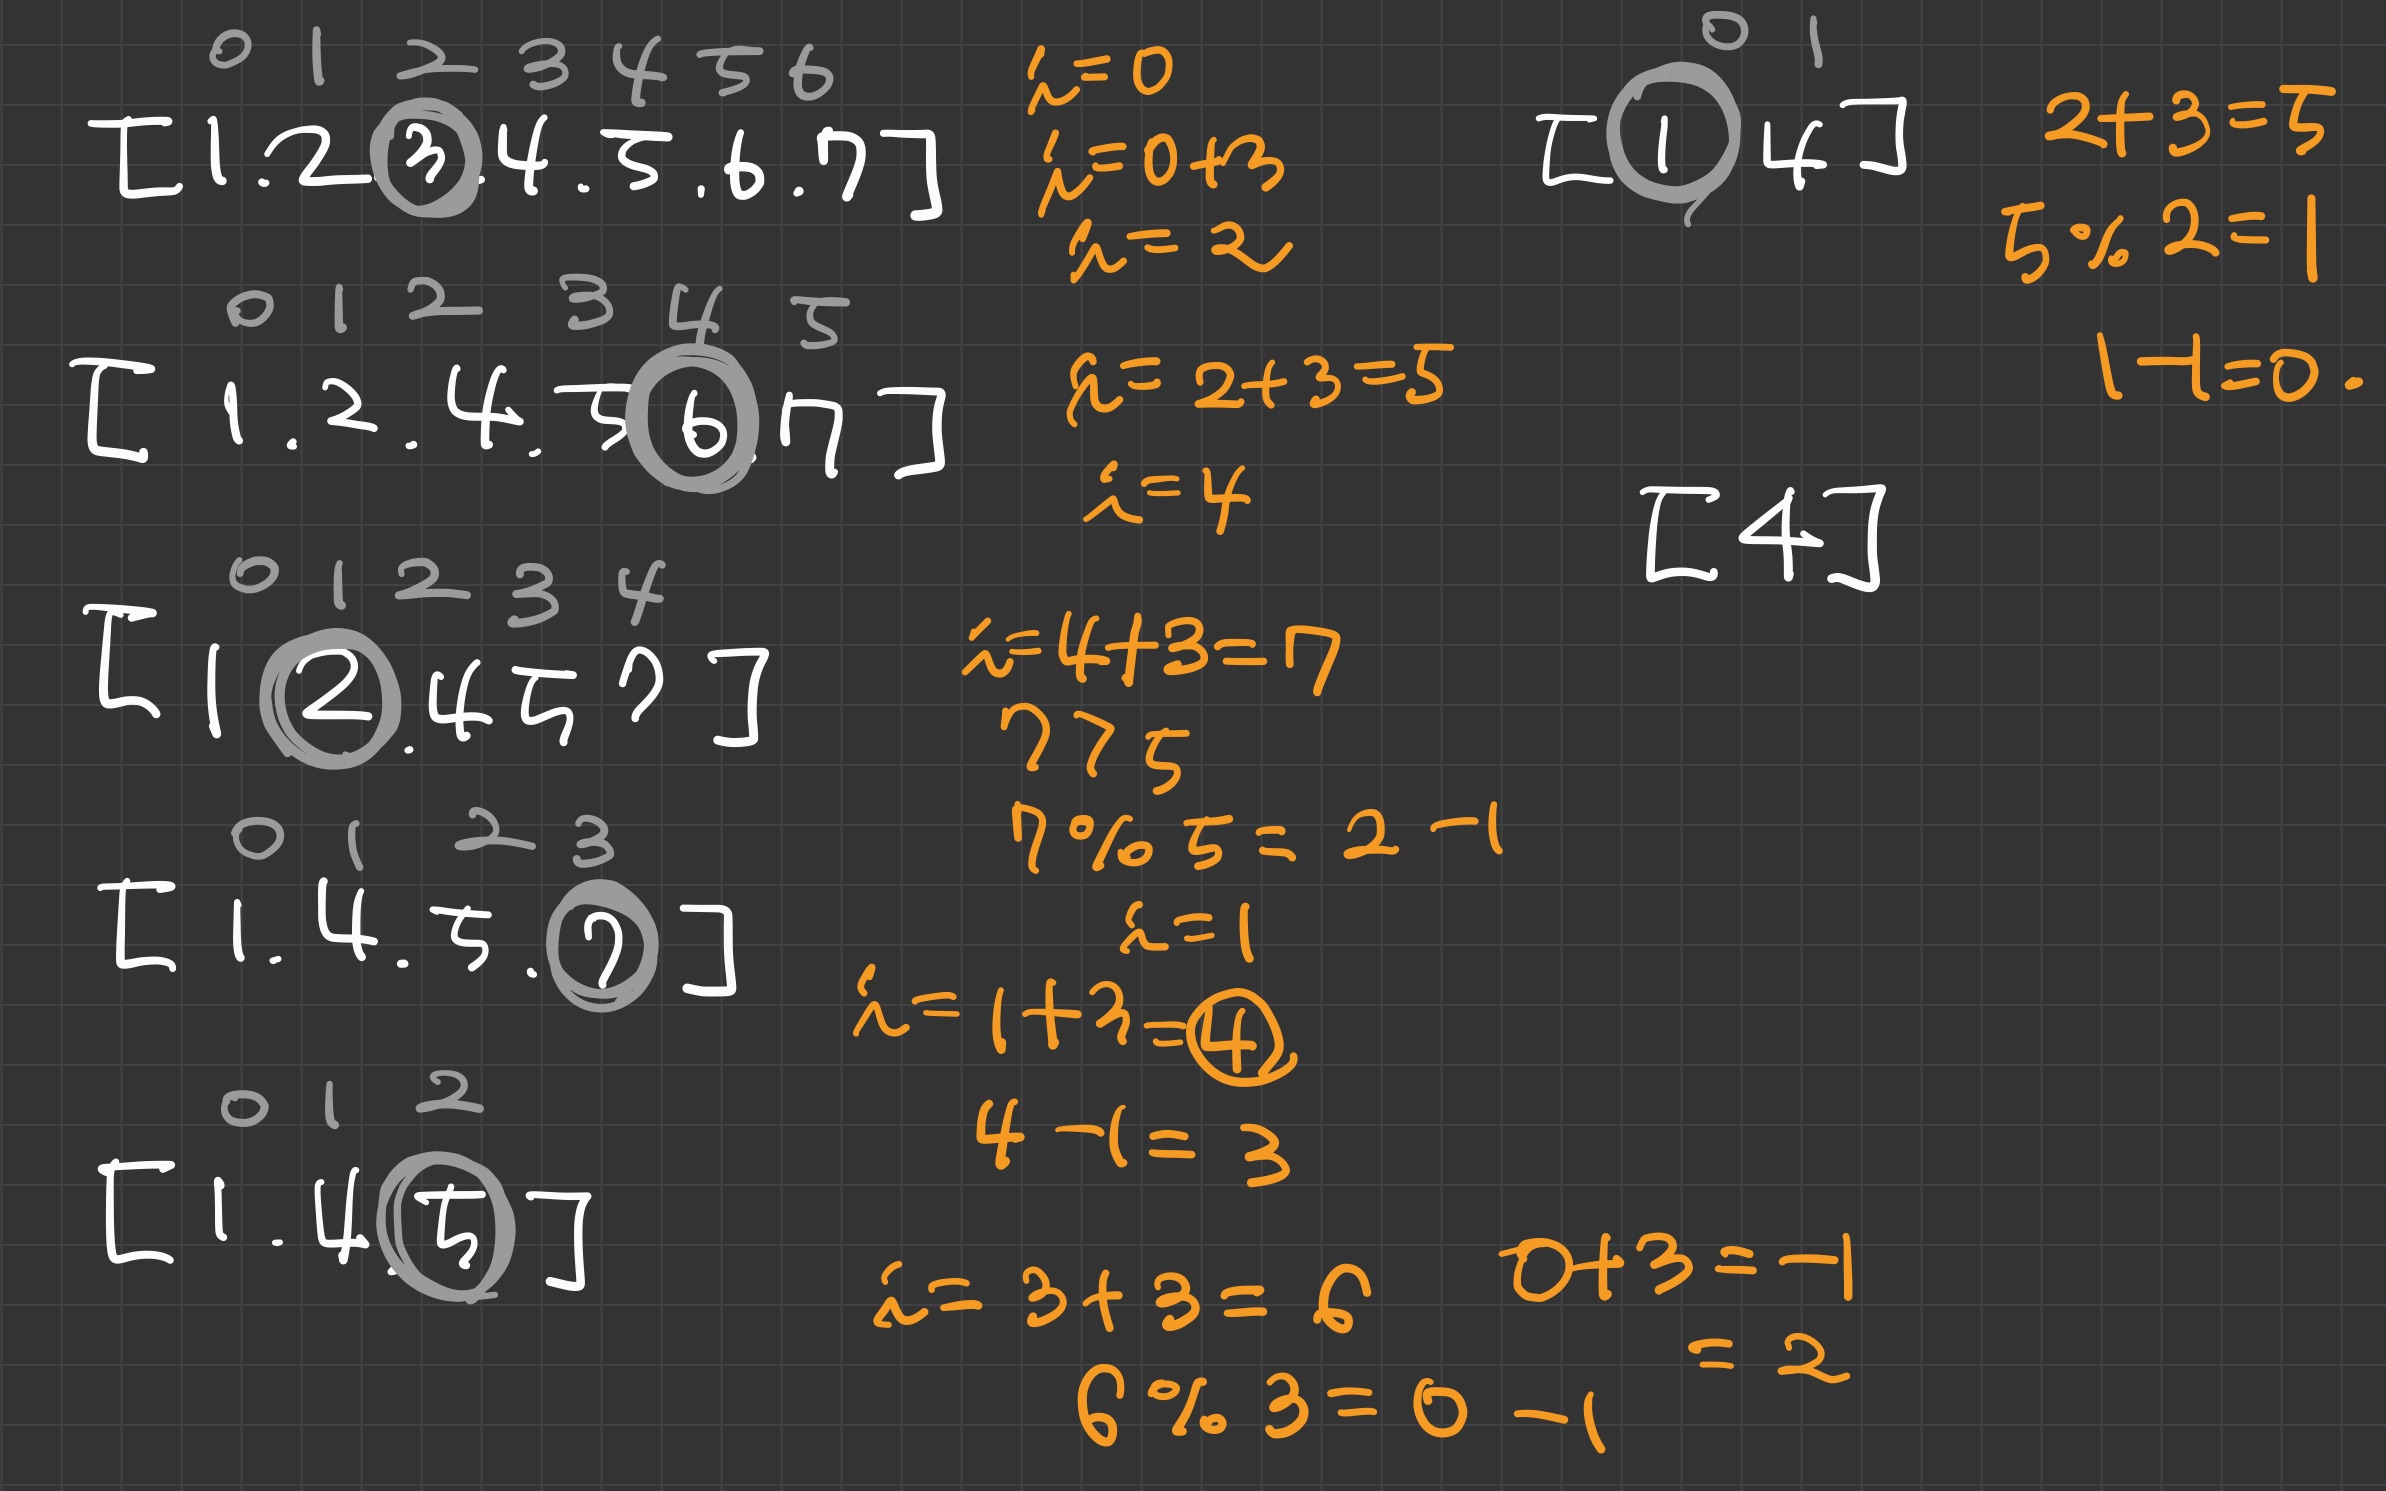 0 1 2 3 4 5 6
[1.2.3.4.5.6.7]
i=0
i=0+3
i=2
0 1 2 3 4 5
[1.2.4.5 6.7]
i=2+3=5
i=4
0 1 2 3 4
[1 2.4 5 7]
i=4+3=7
7 7 5
7%5=2-1
i=1
0 1 2 3
[1.4.5.7]
i=1+3=4
4-1=3
0 1 2
[1.4.5]
i=3+3=6
6%3=0-1
0+3=-1
=2
0 1
[1 4]
2+3=5
5%2=1
1-1=0.
[4]